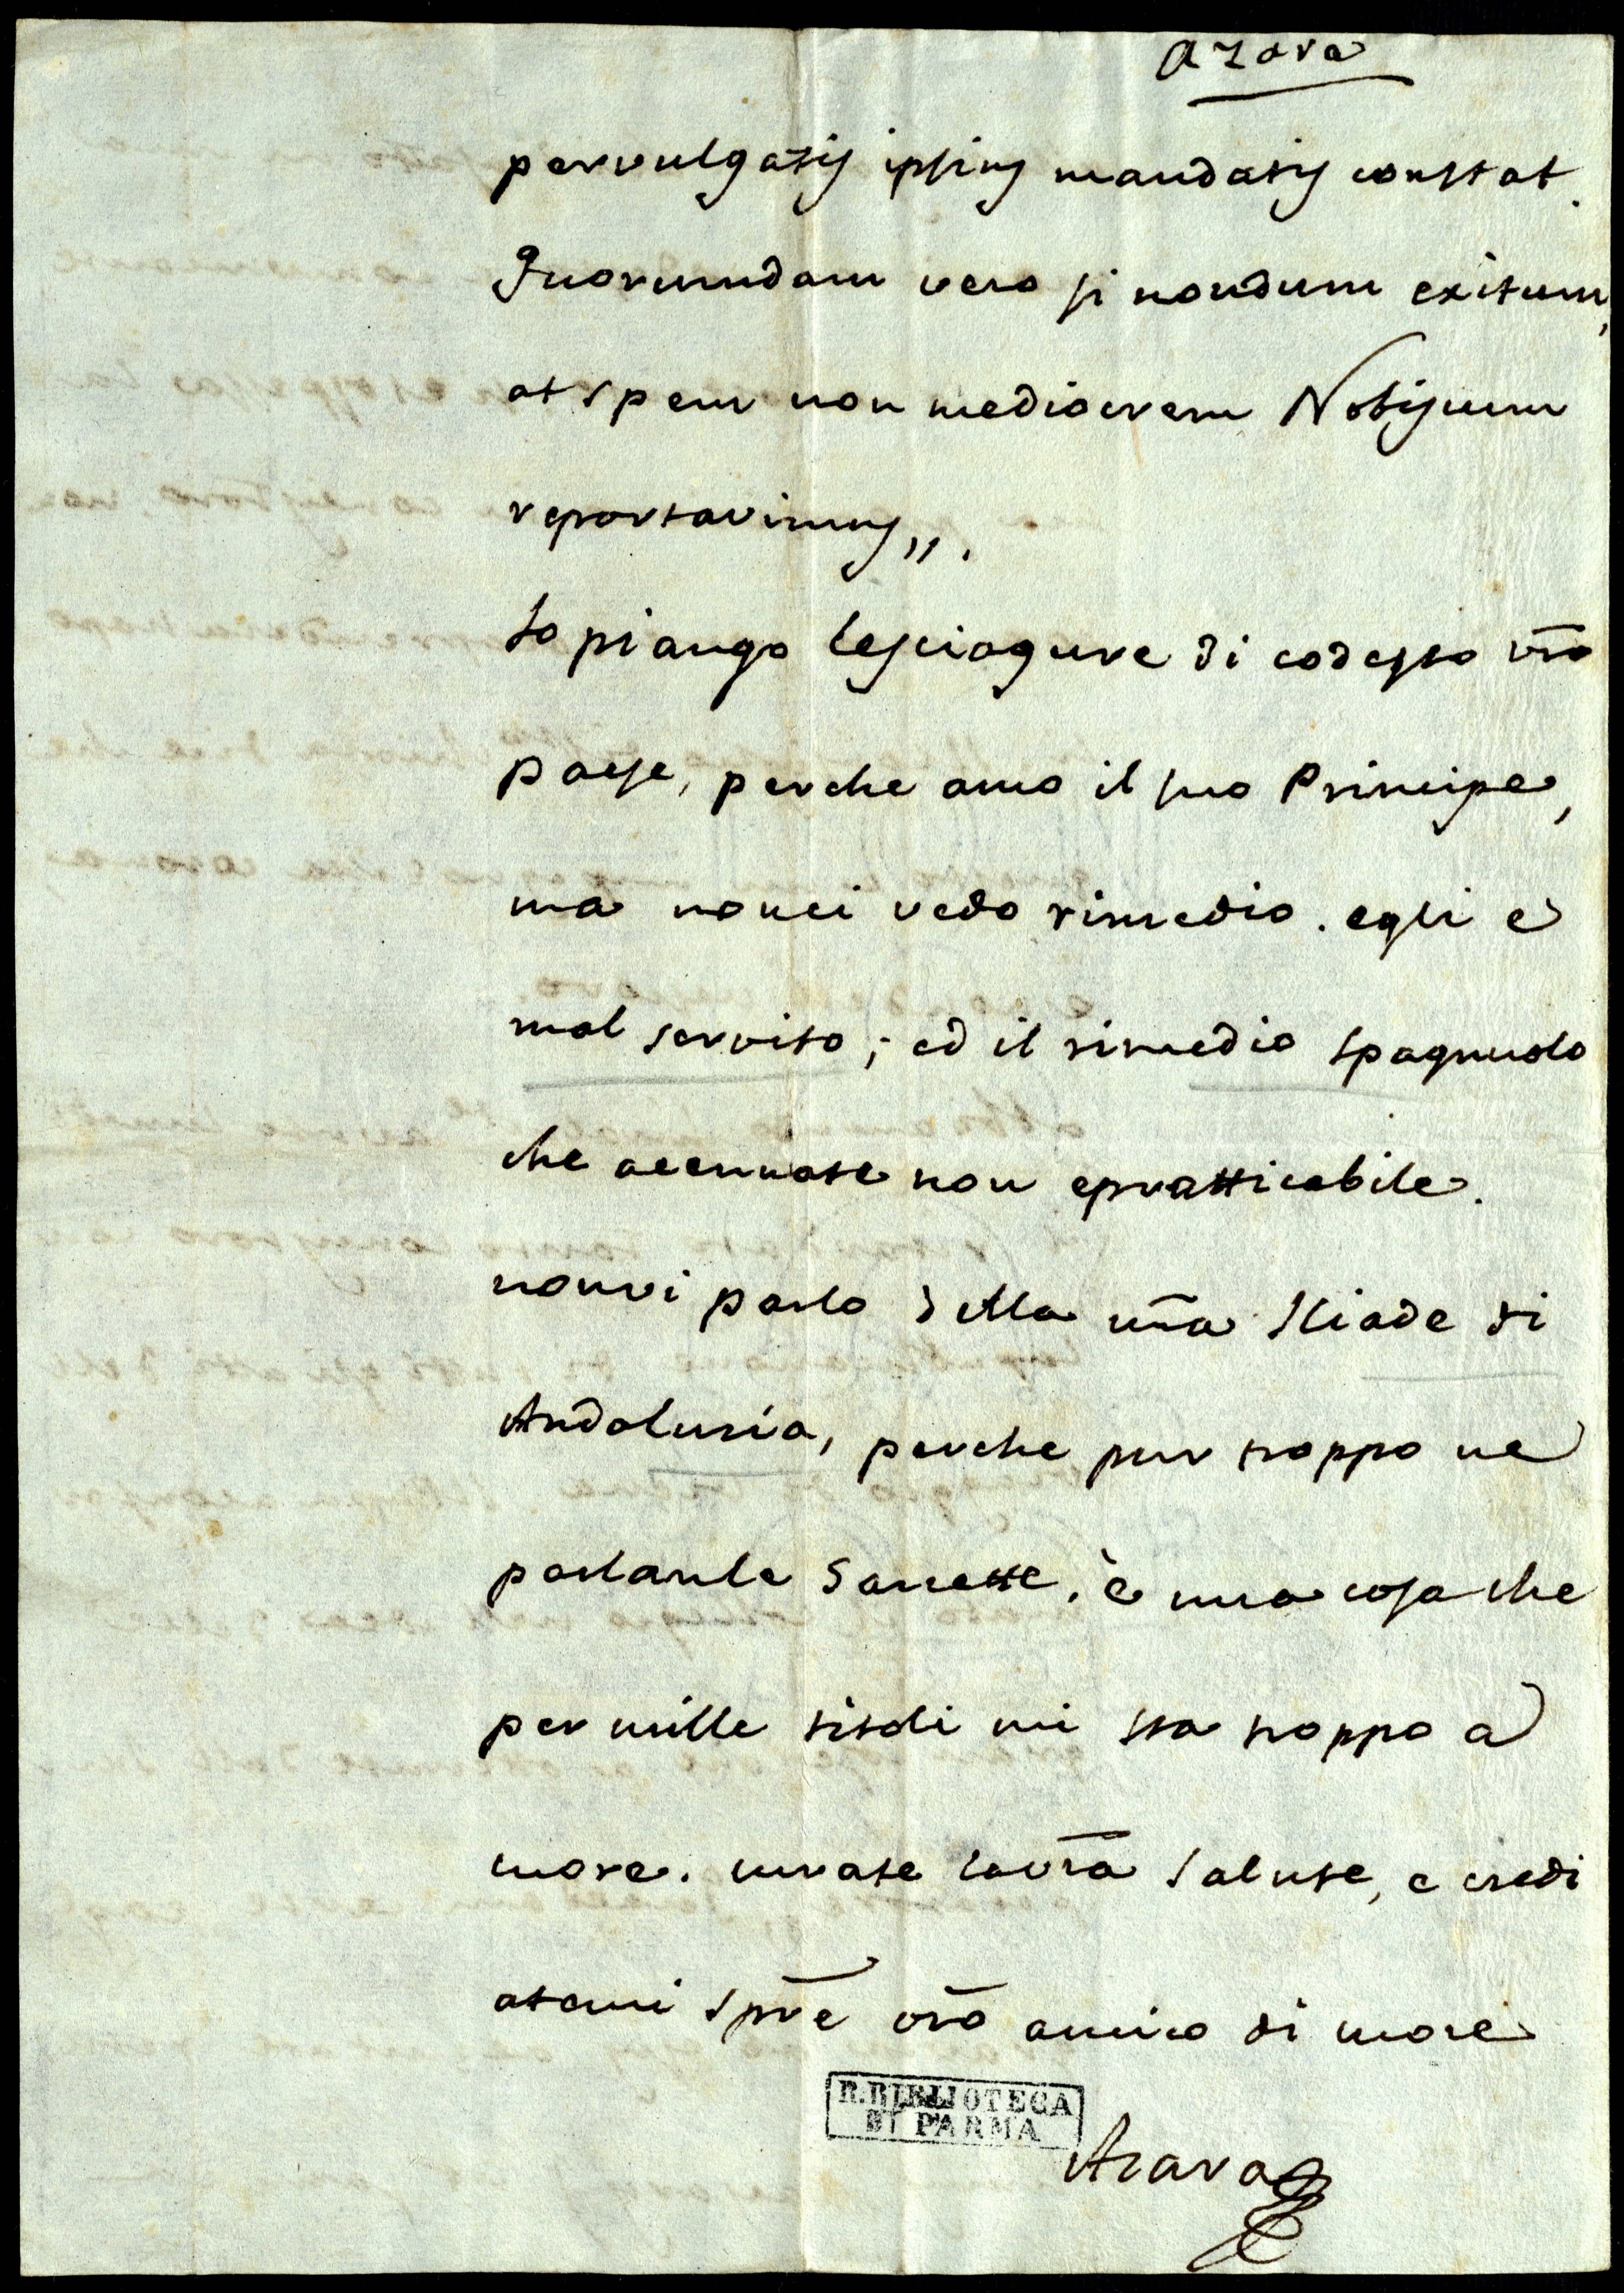 Azara
pervulgatis ipsius mandatis constat.
Quorumdam vero si nondum exitum,
at spem non mediocrem Nobiscum
reportavimus,,.
Io piango lesciagure di codesto vr̃o
paese, perche amo il suo Principe,
ma nonci vedo rimedio. egli e
mal servito; ed il rimedio spagnuolo
che accennate non epratticabile.
nonvi parlo della nr̃a Iliade di
Andalusia, perche pur troppo ne
parlanle Gazzette. è una cosa che
per mille titoli mi sta troppo a
cuore. curate lavr̃a salute, e credi
atemi spr̃e vr̃o amico di core
R. BIBLIOTECA
DI PARMA
Azara